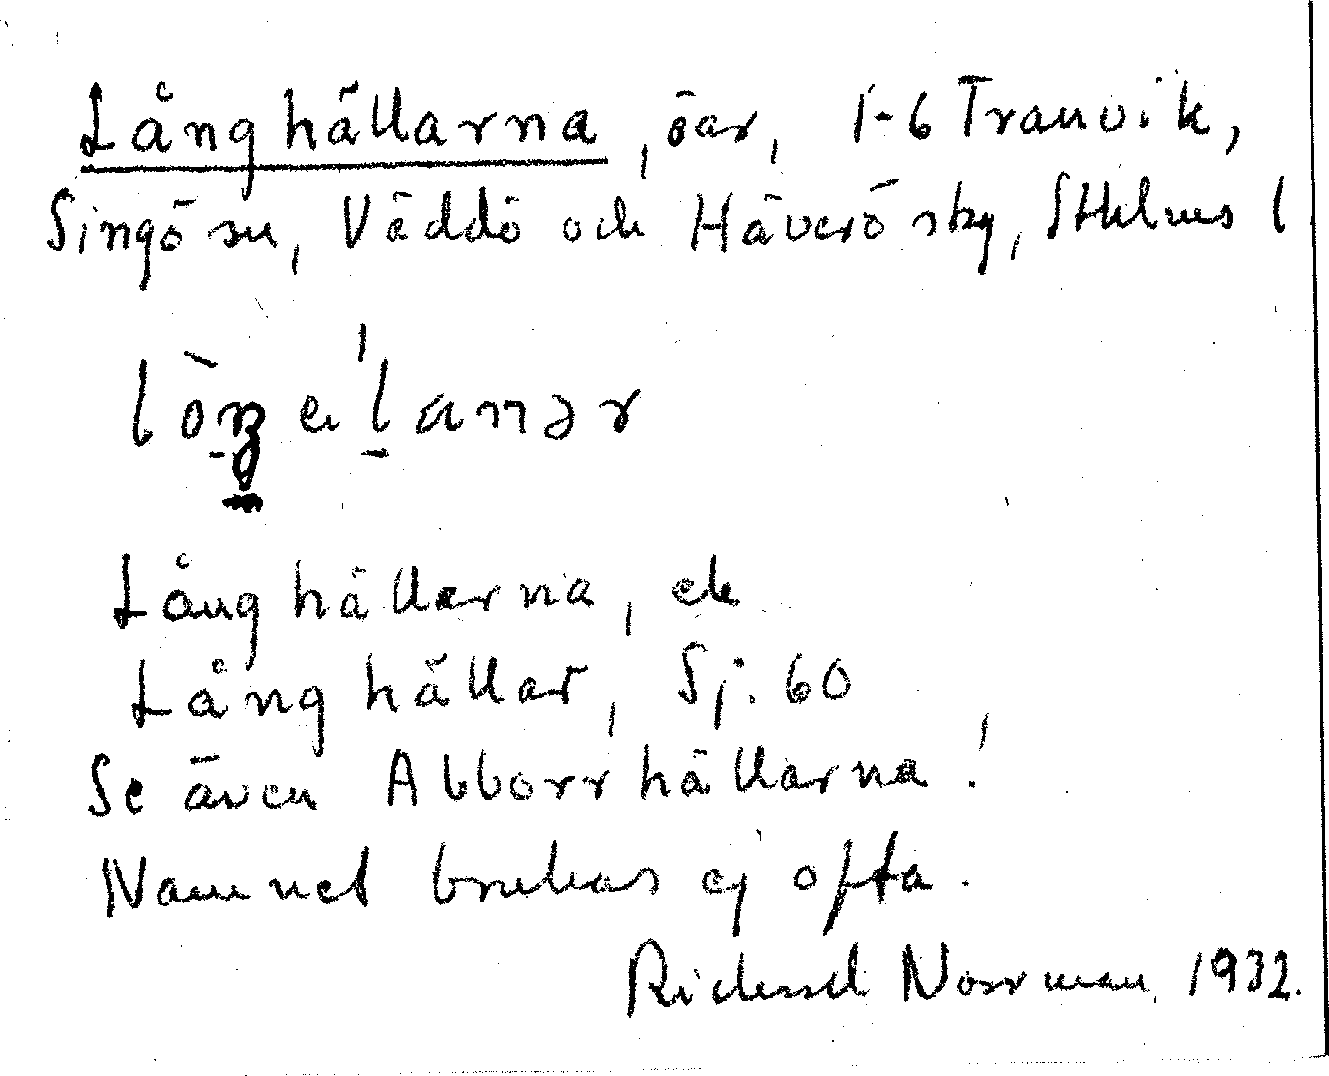 Långhällarna, öar, 1-6 Tranvik,
Singö sn, Väddö och Häverö skg, Sthlms l
Långhällarna, ek
Långhällar, Sj. 60
Se även Abborrhällarna!
Namnet brukas ej ofta.
Rickard Norrman 1932.